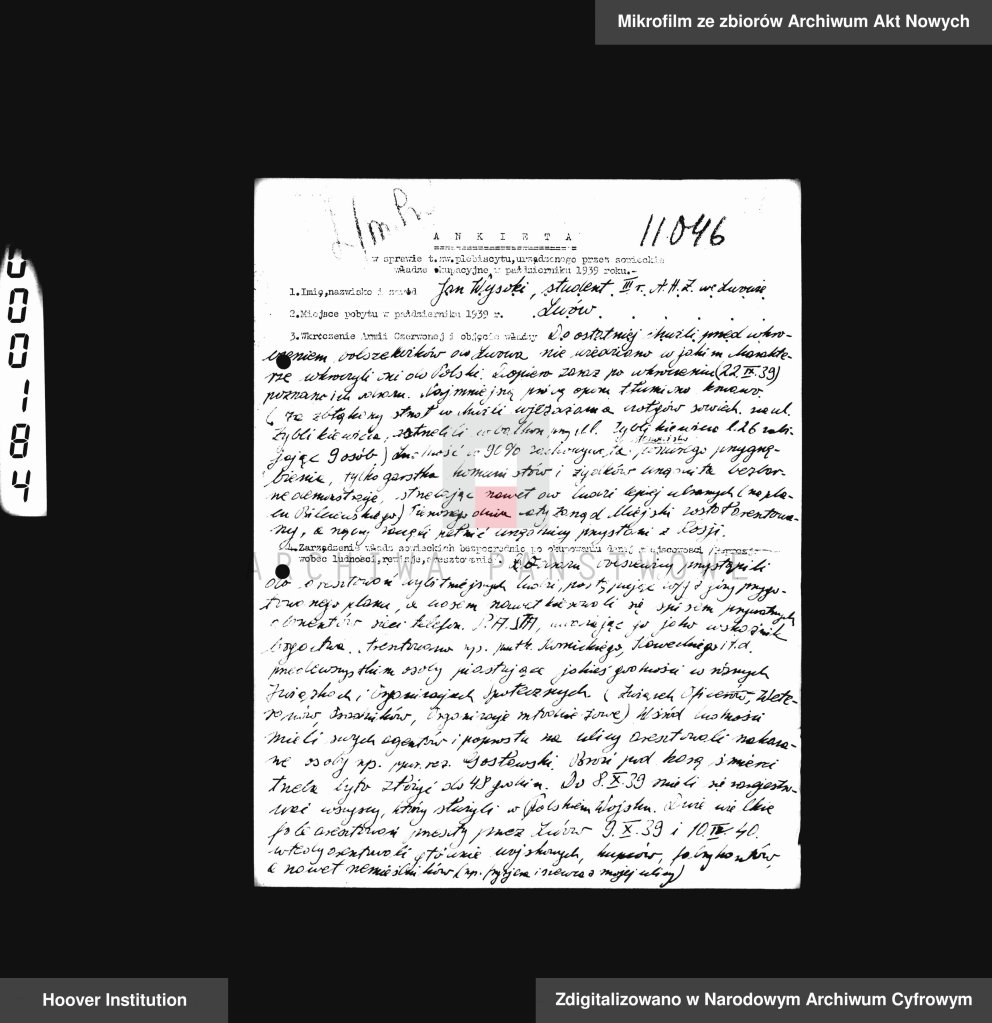 Mikrofilm ze zbiorów Archiwum Akt Nowych
0000184
L/m. Pr.
11.046
A N K I E T A
w sprawie t.zw.plebiscytu,urządzonego przez sowieckie
władze okupacyjne w październiku 1939 roku.-
1.Imię,nazwisko i zawód Jan Wysocki, student III r. A.H.Z. we Lwowie
2.Miejsce pobytu w październiku 1939 r. Lwów
3.Wkroczenie Armii Czerwonej i objęcie władzy Do ostatniej chwili przed wkro-
czeniem bolszewików do Lwowa nie wiedziano w jakim charakte-
rze wkroczyli oni do Polski. Dopiero zaraz po wkroczeniu (22.IX.39)
poznano ich. Najmniejszą próbę oporu tłumiono krwawo.
(za zbłąkany strzał w chwili wjeżdżania czołgów sowieck. na ul.
Zyblikiewicza, przy ul. Zyblikiewicza l.26 zabi-
jając 9 osób) Ludność w 90% stanowisko pełnego przygnę-
bienia, tylko garstka komunistów i żydków urządzała bezbar-
ne demonstracje, strzelając nawet do ludzi lepiej ubranych (na pla-
cu Bilczewskiego) Pierwszego dnia cały Zarząd Miejski został aresztowa-
ny, a zaczęli pełnić urzędnicy przysłani z Rosji.
4.Zarządzenia władz sowieckich bezpośrednio po okupowaniu danej miejscowości /represje
wobec ludności,rewizje,aresztowania/ Od razu przystąpili
do aresztowań wybitniejszych ludzi, postępując wg. z góry przygo-
towanego planu, a czasem nawet kierowali się spisem prywatnych
abonentów sieci telefon. P.A.S.T.A., uważając ją jako wskaźnik
bogactwa. Aresztowano np. Kornickiego, Kaweckiego itd.
przedewszystkim osoby piastujące jakieś godności w różnych
Związkach i Organizacjach Społecznych (Związek Oficerów, Wete-
ranów, Osadników, Organizacje młodzieżowe) Wśród ludności
mieli swych agentów i poprostu na ulicy aresztowali nakaza-
ne osoby np. ppor. rez. Gosławski. Broń pod karą śmierci
trzeba było złożyć do 48 godzin. Do 8.X.39 mieli się zarejestro-
wać wszyscy, którzy służyli w Polskim Wojsku. Dwie wielkie
fale aresztowań przeszły przez Lwów 9.X.39 i 10.IV.40.
wtedy aresztowali głównie wojskowych, kupców, fabrykantów,
a nawet rzemieślników (np. fryzjera i szewca z mojej ulicy)
ARCHIWA PAŃSTWOWE
Hoover Institution
Zdigitalizowano w Narodowym Archiwum Cyfrowym